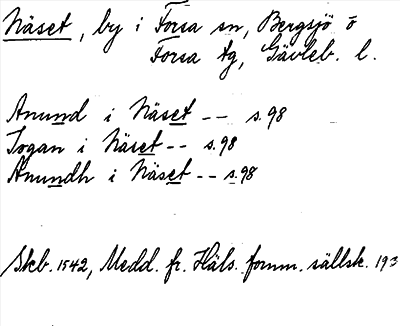 Näset, by i Forsa sn, Bergsjö o
Forsa tg, Gävleb. l.
Anund i Näset -- s. 98
Jogan i Näset -- s. 98
Anundh i Näset -- s. 98
Skb. 1542, Medd. fr. Häls. fornm. sällsk. 193